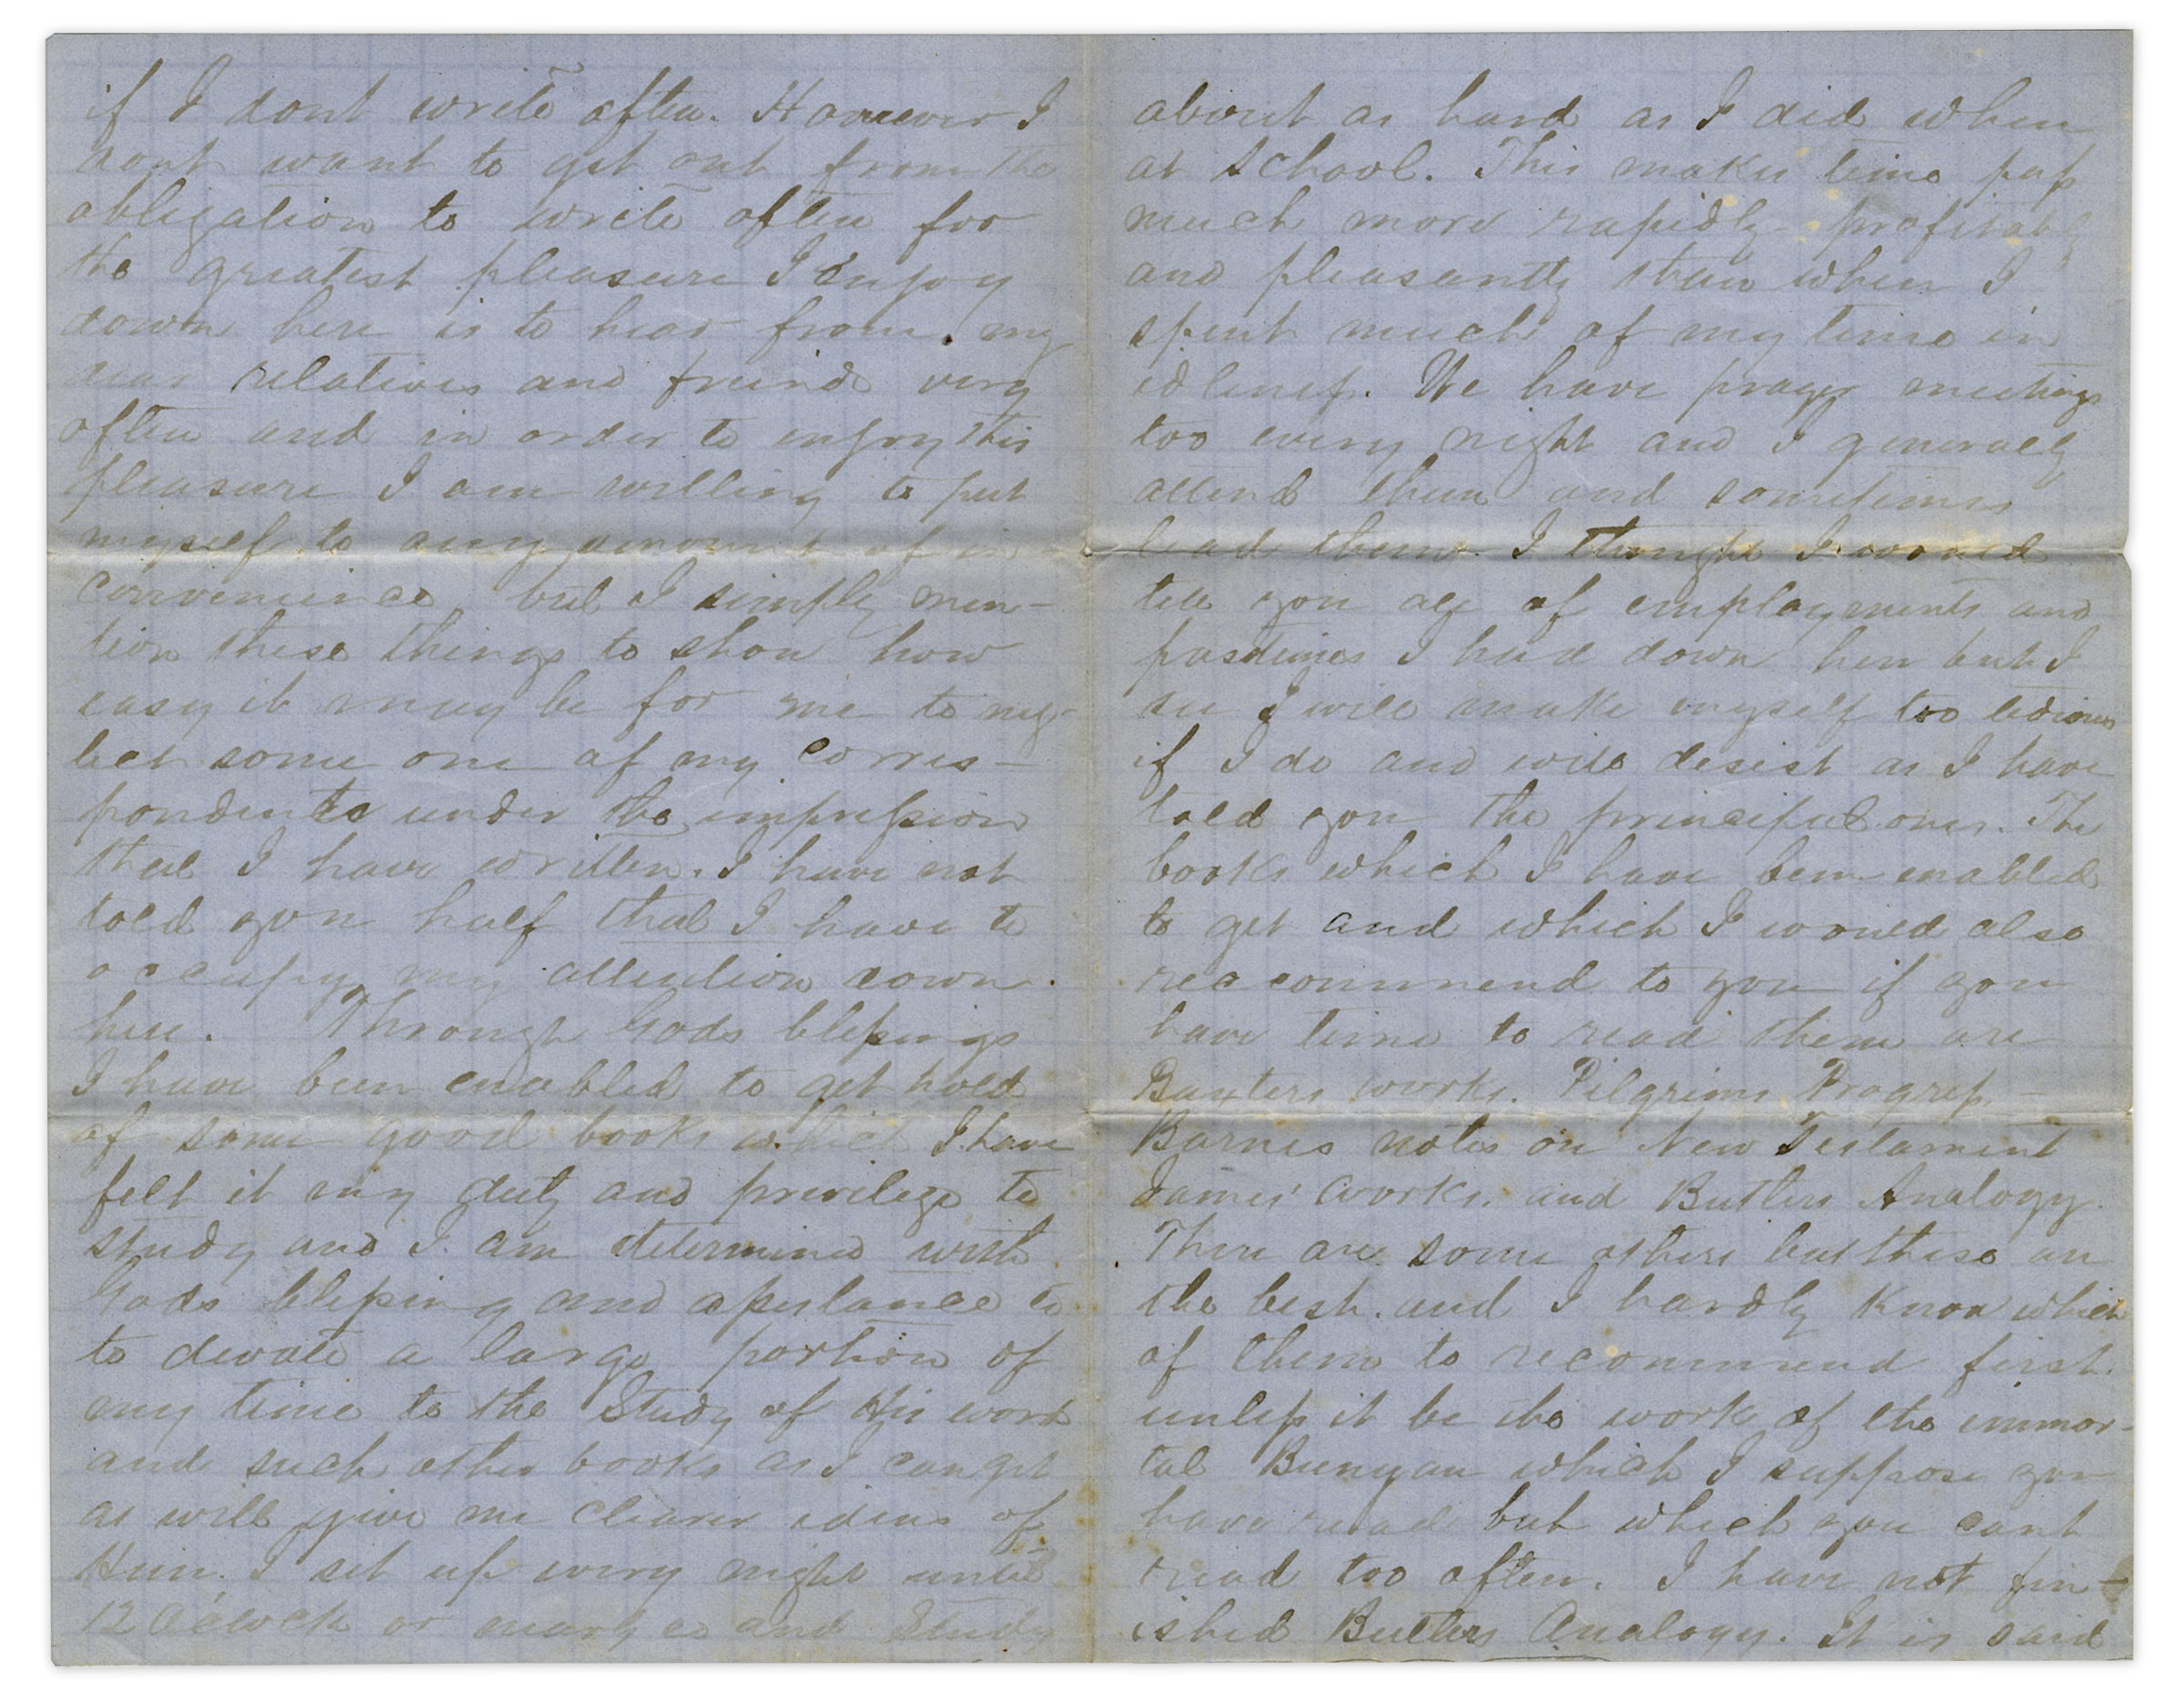 if I dont write often. However I
dont want to get out from the
obligation to write often for
the greatest pleasure I enjoy
down here is to hear from my
dear relatives and freinds very
often and in order to enjoy this
pleasure I am willing to put
myself to any amount of in
convenience, but I simply men-
tion these things to show how
easy it may be for me to neg-
lect some one of my corres-
pondents under the impression
that I have written. I have not
told you half that I have to
occupy my attention down
here. Through Gods blessings
I have been enabled to get hold
of some good books which I have
felt it my duty and privilege to
study and I am determined with
Gods blessing and assistance to
to devote a large portion of
my time to the Study of His word
and such other books as I can get
as will give me clearer ideas of
Him. I set up every night until
12 Oclock or nearly so and Study
about as hard as I did when
at School. This makes time pass
much more rapidly - profitably
and pleasantly than when I
spent much of my time in
idleness. We have prayer meetings
too every night and I generally
attend them and sometimes
lead them. I thought I would
tell you all of employments and
pastimes I had down here but I
see I will make myself too tedious
if I do and will desist as I have
told you the principal ones. The
books which I have been enabled
to get and which I would also
reccommend to you if you
have time to read them are
Baxters works. Pilgrims Progress
Barnes notes on New Testament
James' works. and Butlers Analogy.
There are some others but these are
the best. and I hardly know which
of them to recommend first.
unless it be the work of the immor-
tal Bunyan which I suppose you
have read but which you cant
read too often. I have not fin-
ished Butlers Analogy. It is said